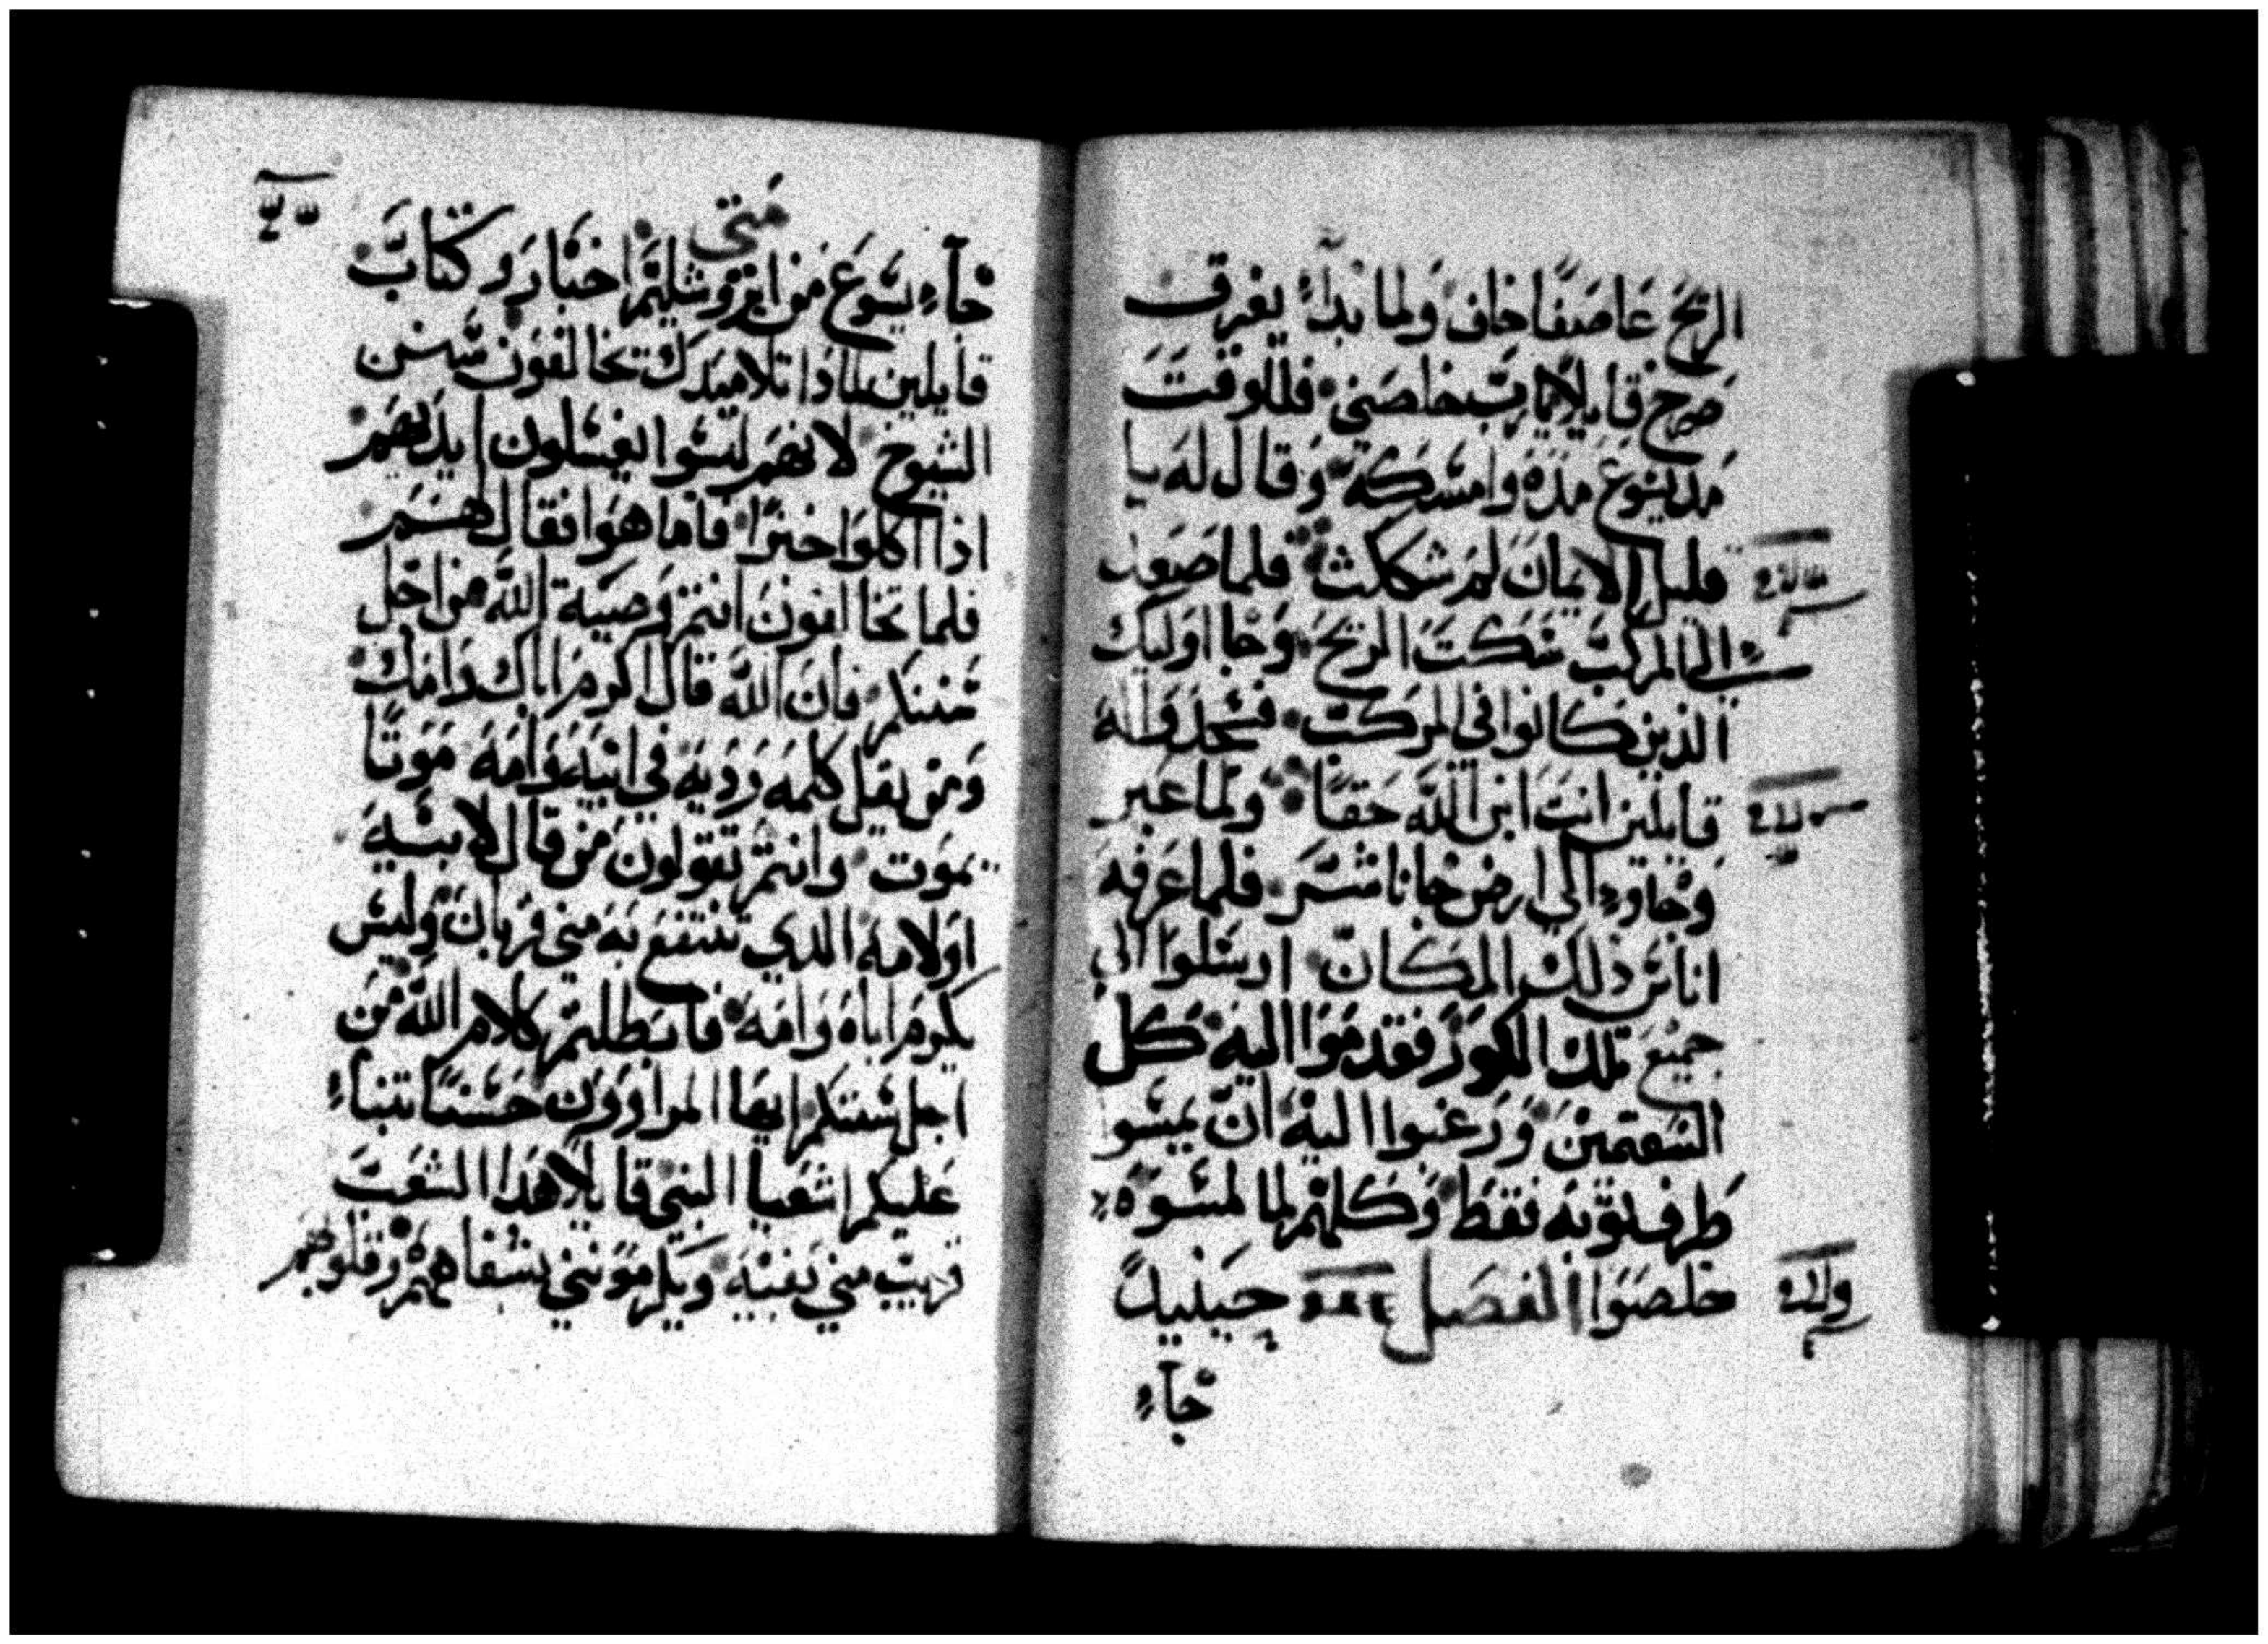 الريح عاصفًا خاف ولما بداء يغرق
صرخ قايلا يارب خلصني فللوقت
مد يسوع يده وامسكه وقال له يا
قليل الايمان لم شككت فلما صعد
الى المركب سكت الريح وجا اوليك
الذين كانوا في المركب فسجدوا له
قايلين انت ابن الله حقًا ولما عبر
وجاوء الى ارض جاناشر فلما عرفه
اناس ذلك المكان ارسلوا الى
جميع تلك الكور فقدموا اليه كل
السقمين ورغبوا اليه ان يمسو
طرف ثوبه فقط وكلهم لما لمسوه
خلصوا الفصل حينيدً
جآء
متى
جآء يسوع من ايروشليم احبار وكتاب
قايلين لماذا تلاميدك تخالفون سنن
الشيوخ لانهم ليسوا يغسلون ايديهم
اذا اكلوا خبزًا فاما هوا فقال لهم
فلما تخالفون انتم وصية الله من اجل
سنتكم فان الله قال اكرم اباك وامك
ومن يقل كلمه رديه في ابيه وامه موتًا
يموت وانتم تقولون من قال لابيه
اولامه الذي تنتفع به مني قربان وليس
يكرم اباه وامه فابطلتم كلام الله من
اجل سنتكم ايها المراوون حسنًا تنباء
عليكم اشعيا النبي قايلا هذا الشعب
قريب مني بفيه ويكرموني بشفاههم وقلوبهم